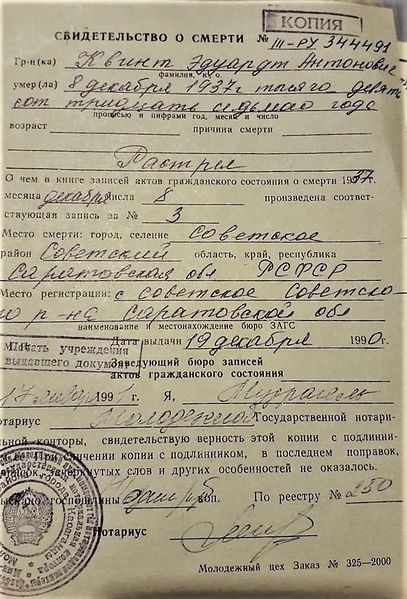 КОПИЯ
СВИДЕТЕЛЬСТВО О СМЕРТИ № III-РУ 344491
Гр-н(ка) Квинт Эдуардт Антонович
фамилия, и., о.
умер(ла) 8 декабря 1937г тысяча девять
сот тридцать седьмого года
прописью и цифрами год, месяц и число
возраст причина смерти
Расстрел
О чем в книге записей актов гражданского состояния о смерти 1937г.
месяца декабря числа 8 произведена соответ-
ствующая запись за № 3
Место смерти: город, селение Советское
район Советский область, край, республика
Саратовская обл РСФСР
Место регистрации: с Советское Советско-
го р-на Саратовской обл
наименование и местонахождение бюро ЗАГС
Дата выдачи 19 декабря 1990г.
Печать учреждения
выдавшего документ
Заведующий бюро записей
актов гражданского состояния
17 января 1991 Я,
нотариус Молодежной Государственной нотари-
альной конторы, свидетельствую верность этой копии с подлинни-
При сличении копии с подлинником, в последнем поправок,
зачеркнутых слов и других особенностей не оказалось.
госпошлины коп. По реестру № 250
Нотариус
Молодежный цех Заказ № 325—2000